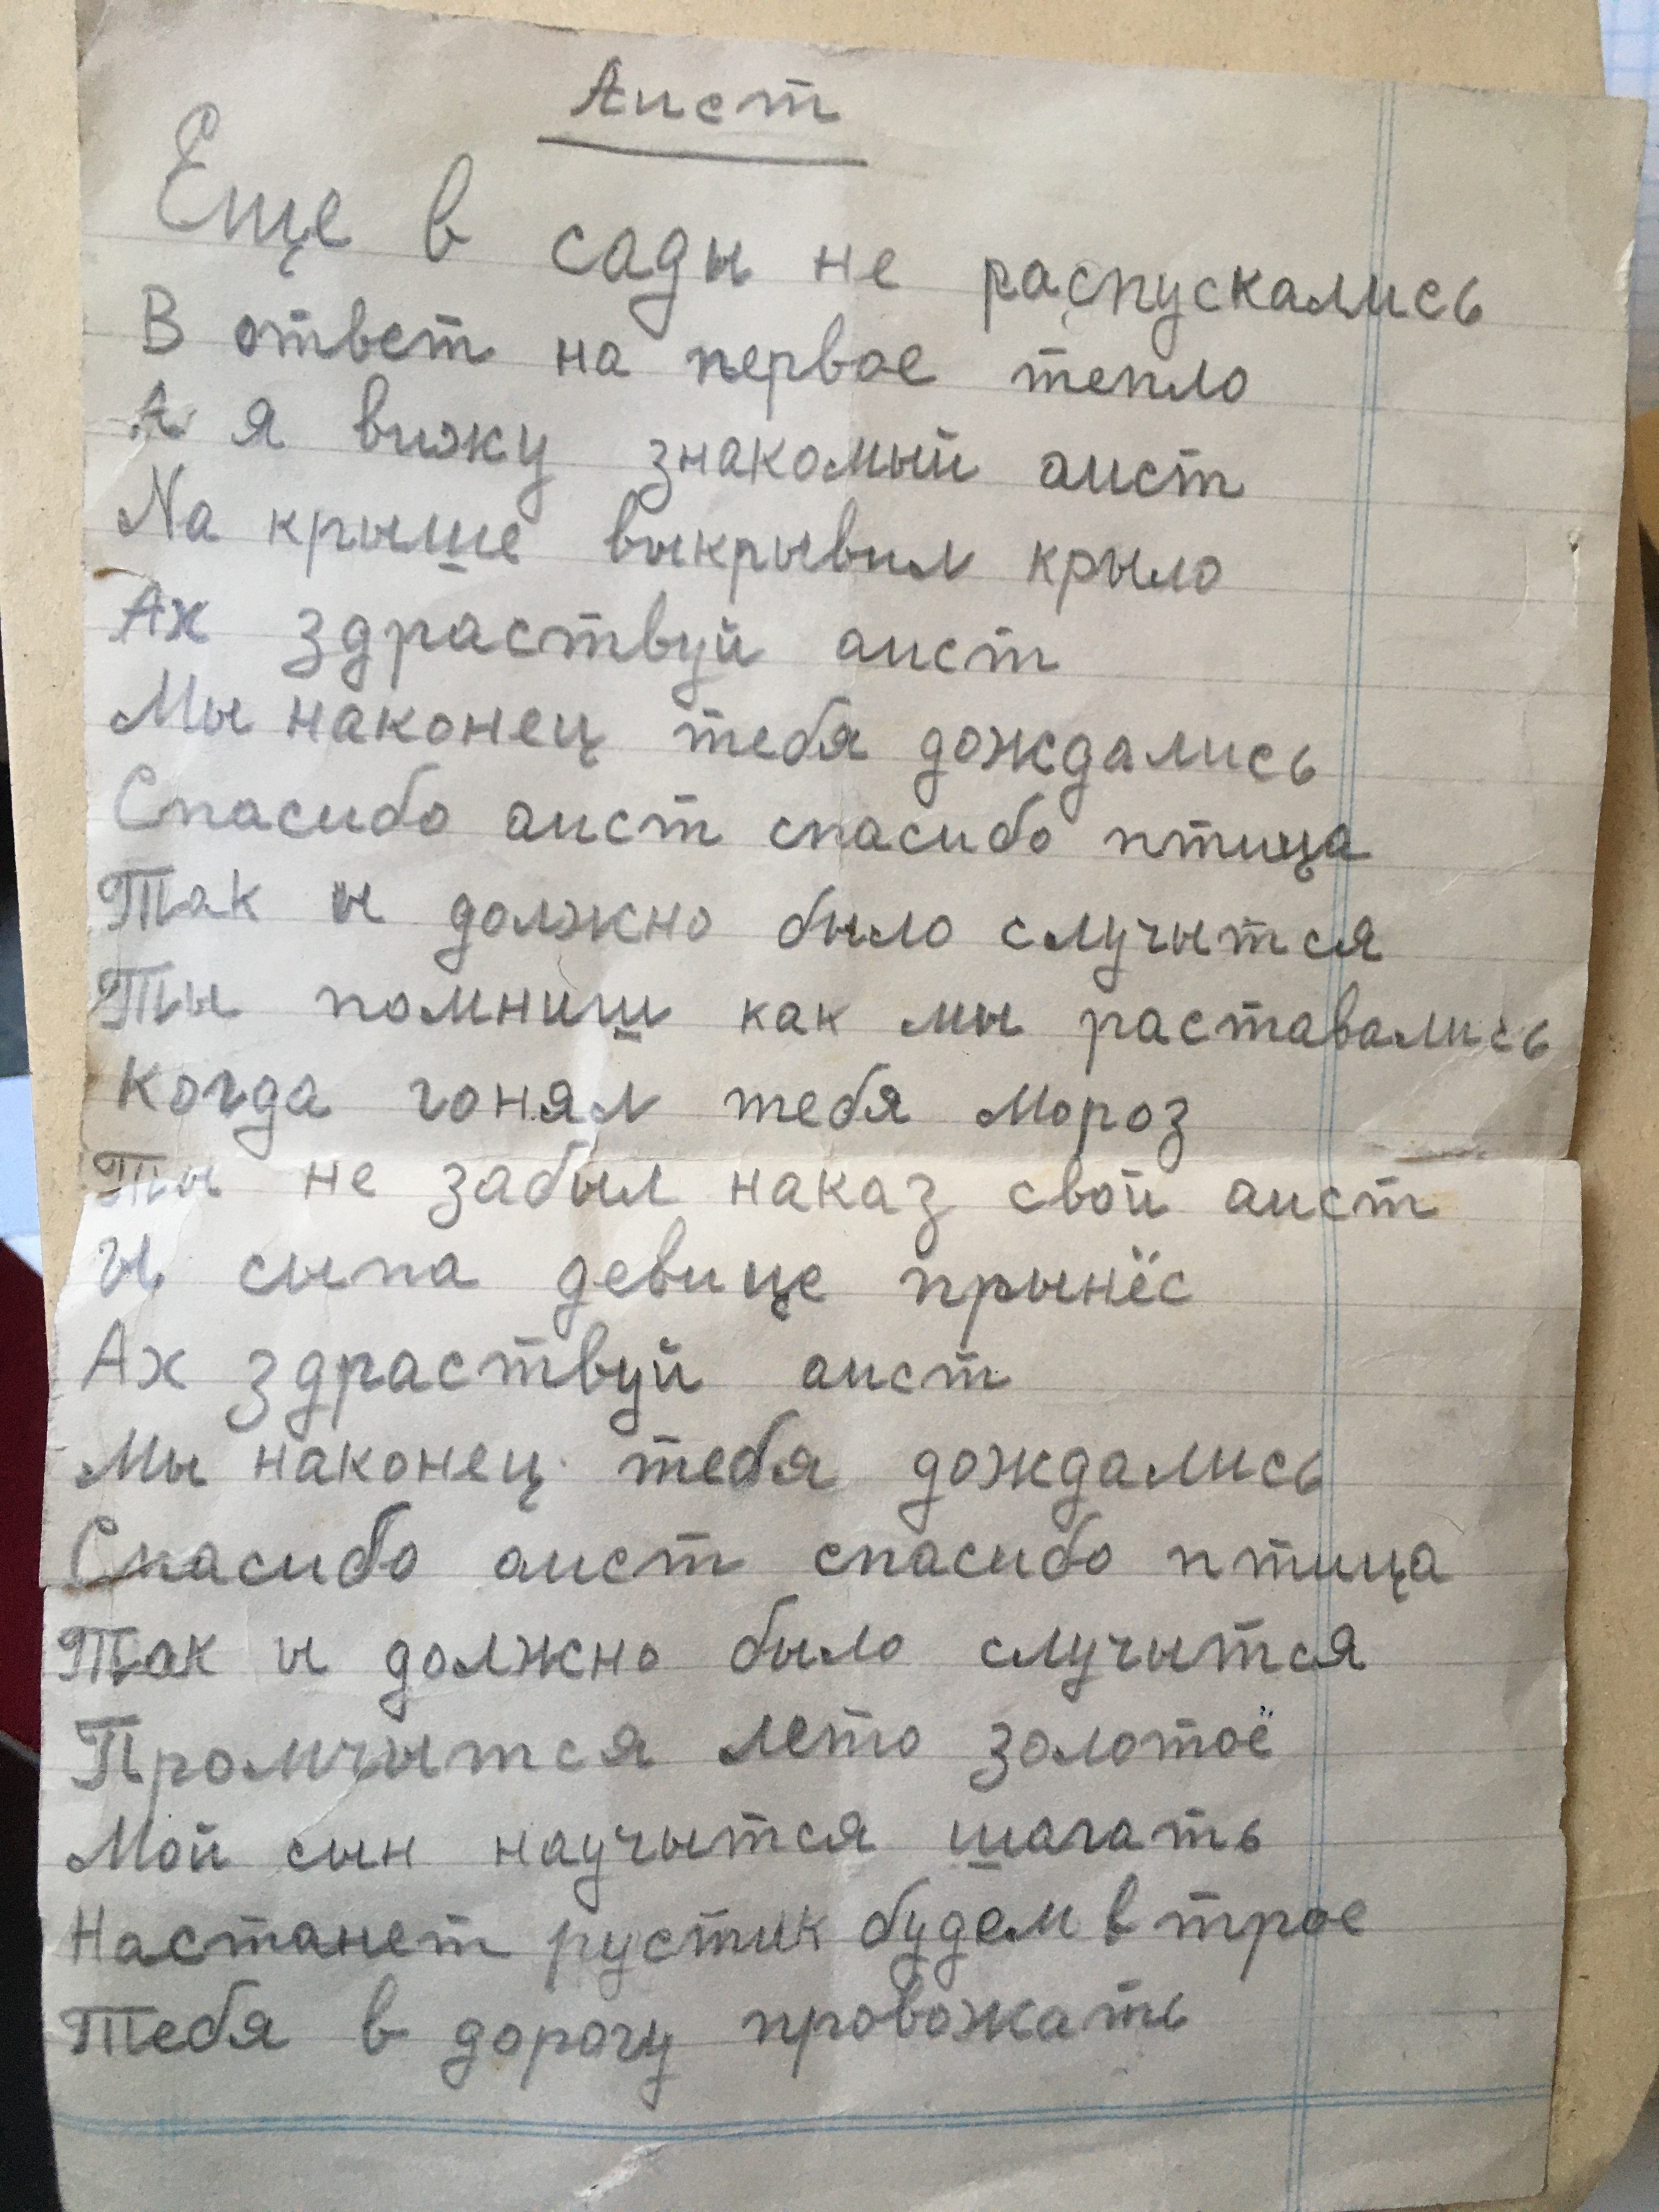 Аист
Еще в сады не распускались
В ответ на первое тепло
А я вижу знакомый аист
На крыше выкрывил крыло
Ах здраствуй аист
Мы наконец тебя дождались
Спасибо аист спасибо птица
Так и должно было случытся
Ты помниш как мы раставались
Когда гонял тебя мороз
Ты не забыл наказ свой аист
И сына девице прынёс
Ах здраствуй аист
Мы наконец тебя дождались
Спасибо аист спасибо птица
Так и должно было случытся
Промчытся лето золотоё
Мой сын научытся шагать
Настанет рустик будем в трое
Тебя в дорогу провожать